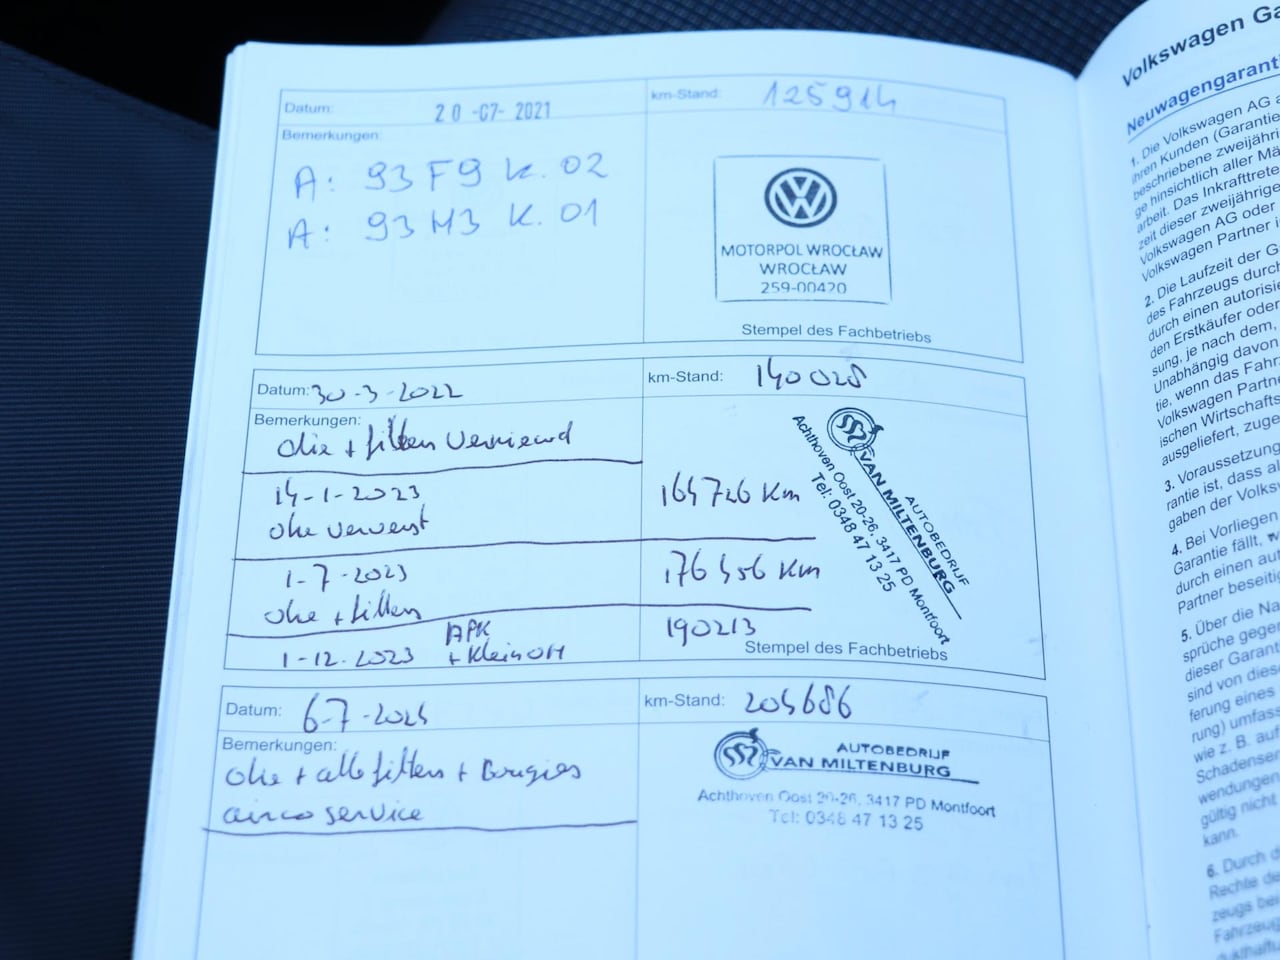 Datum: 20 -07- 2021
km-Stand: 125914
Bemerkungen:
A: 93 F9 K. 02
A: 93 M3 K. 01
MOTORPOL WROCŁAW
WROCŁAW
259-00420
Stempel des Fachbetriebs
Datum: 30-3-2022
km-Stand: 140028
Bemerkungen:
olie + filters ververst
14-1-2023
164726 Km
olie ververst
1-7-2023
176456 Km
olie + filters
1-12-2023 APK
190213
+ Klein OH
AUTOBEDRIJF
VAN MILTENBURG
Achthoven Oost 20-26, 3417 PD Montfoort
Tel: 0348 47 13 25
Stempel des Fachbetriebs
Datum: 6-7-2024
km-Stand: 204686
Bemerkungen:
olie + alle filters + Bougies
airco service
AUTOBEDRIJF
VAN MILTENBURG
Achthoven Oost 20-26, 3417 PD Montfoort
Tel: 0348 47 13 25
Volkswagen Ga
Neuwagengarant
1. Die Volkswagen AG
ihren Kunden (Garantie
beschriebene zweijähri
ge hinsichtlich aller Mä
arbeit. Das Inkrafttrete
zeit dieser zweijährige
Volkswagen AG oder
Volkswagen Partner i
2. Die Laufzeit der G
des Fahrzeugs durch
durch einen autorisie
den Erstkäufer oder
sung, je nach dem,
Unabhängig davon
tie, wenn das Fahr
Volkswagen Partne
ischen Wirtschafts
ausgeliefert, zuge
3. Voraussetzung
rantie ist, dass al
gaben der Volksw
4. Bei Vorliegen
Garantie fällt, w
durch einen aut
Partner beseitig
5. Über die Na
sprüche gegen
dieser Garant
sind von diese
ferung eines
rung) umfass
wie z. B. auf
Schadenser
wendungen
gültig nicht
kann.
6. Durch d
Rechte de
zeugs bei
Fahrzeug